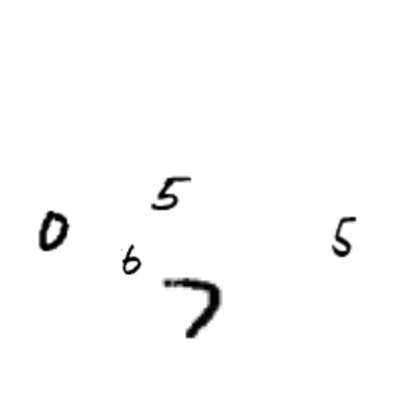 5
0 5
6
7